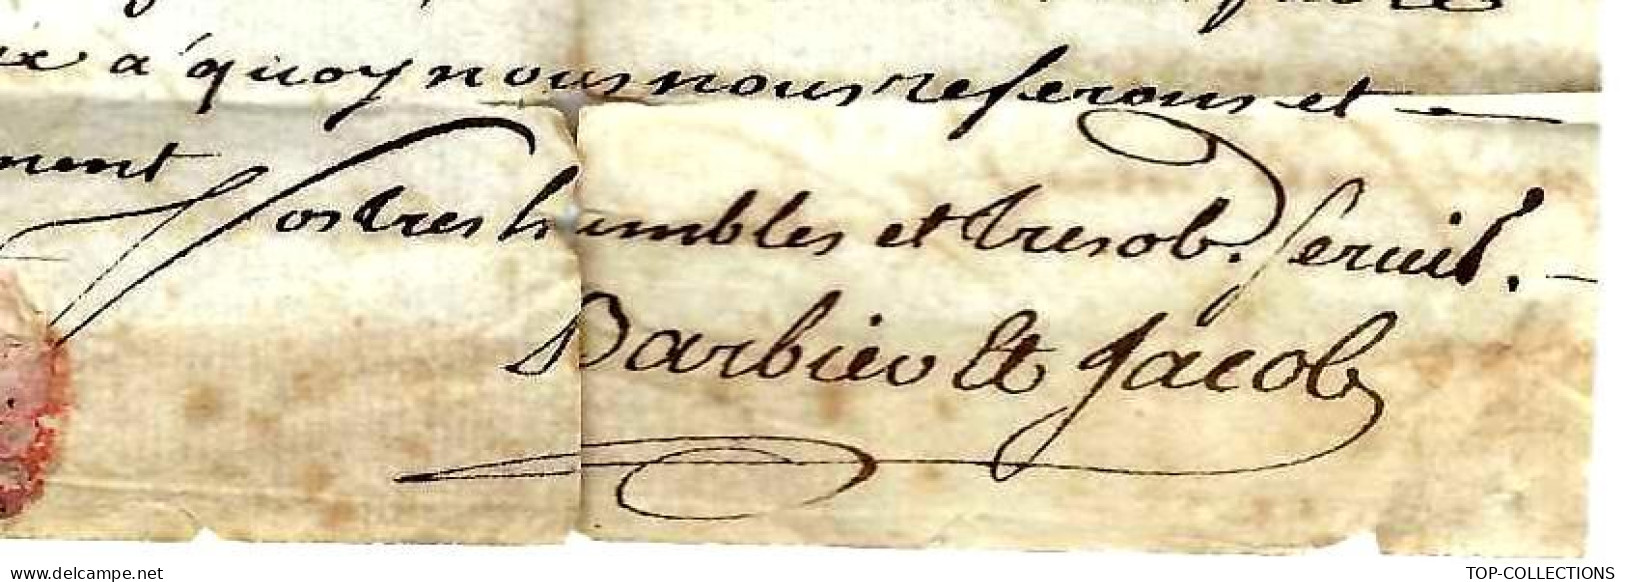 a quoy nous nous referons et
ment
Vos tres humbles et tres ob. Servit.
Barbier Et Jacob
delcampe.net
TOP-COLLECTIONS